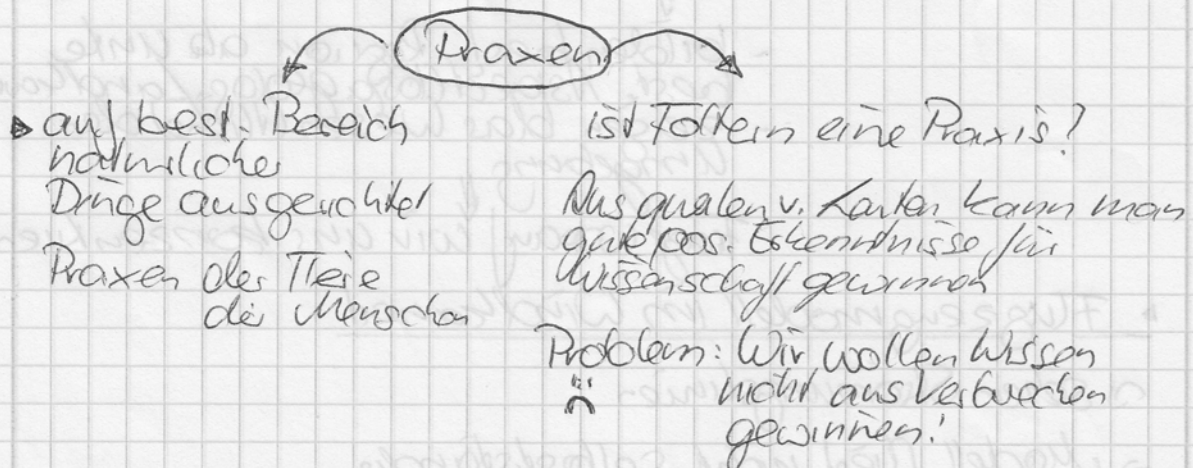 Praxen
▸ auf best. Bereich
natürlicher
Dinge ausgerichtet
Praxen der Tiere
der Menschen
ist Foltern eine Praxis?
Aus quälen v. Leuten kann man
gute pos. Erkenntnisse für
Wissenschaft gewinnen
Problem: Wir wollen Wissen
nicht aus Verbrechen
gewinnen!